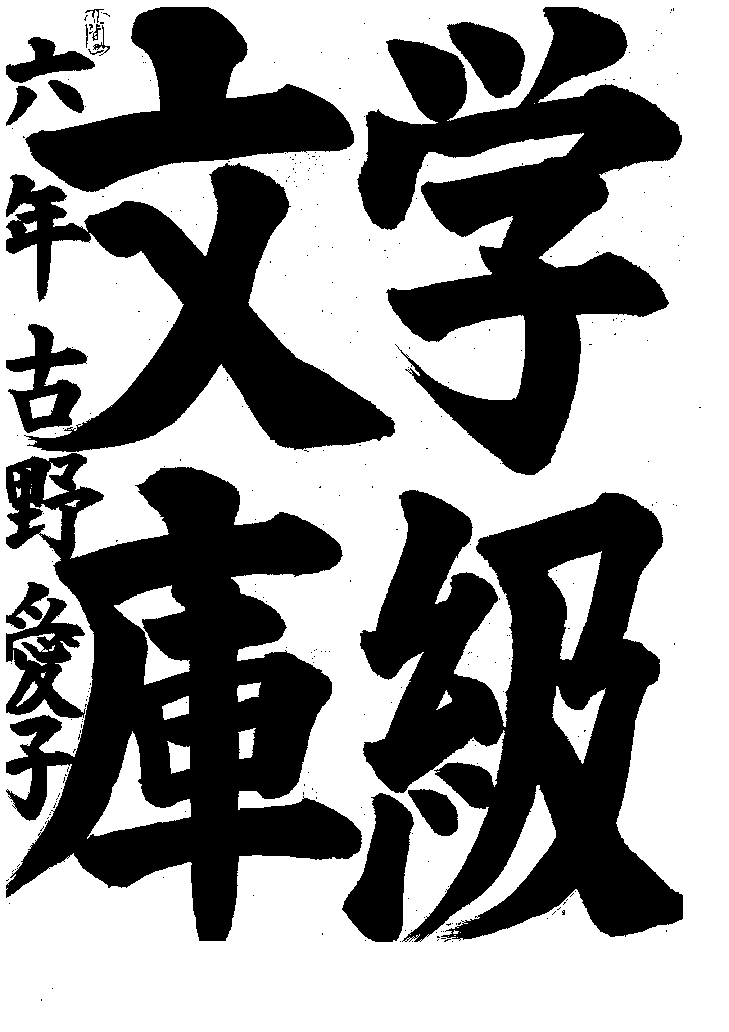 学級
文庫
六年古野愛子